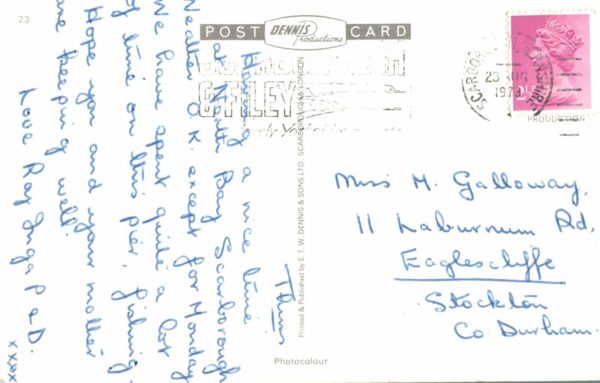 23
POST
DENNIS
Productions
CARD
& FILEY
SCARBOR
23 AUG
197
PRODUCTION
Thurs
Having a nice time
at North Bay Scarborough
Weather O.K. except for Monday
We have spent quite a lot
of time on this pier, fishing.
Hope you and your mother
are keeping well.
Love Ray Inga P & D.
xxxx
Printed & Published by E. T. W. DENNIS & SONS LTD. SCARBOROUGH & LONDON
Photocolour
Miss M. Galloway,
11 Laburnum Rd,
Eaglescliffe
Stockton
Co. Durham.